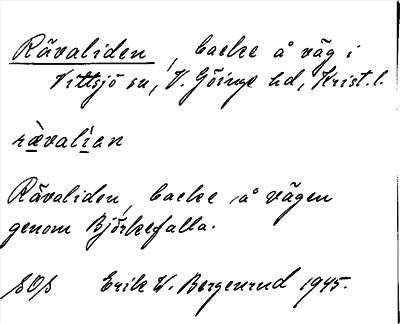 Rävaliden, backe å väg i
Vittsjö sn, V. Göinge hd, Krist. l.
rä̀valìan
Rävaliden, backe å vägen
genom Björkefalla.
Erik W. Bergenrud 1945.